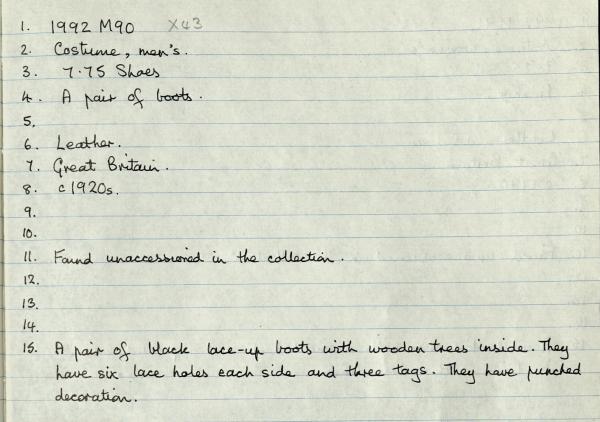 1. 1992 M90 X43
2. Costume, men's.
3. 7.75 Shoes
4. A pair of boots.
5.
6. Leather.
7. Great Britain.
8. c1920s.
9.
10.
11. Found unaccessioned in the collection.
12.
13.
14.
15. A pair of black lace-up boots with wooden trees inside. They
have six lace holes each side and three tags. They have punched
decoration.